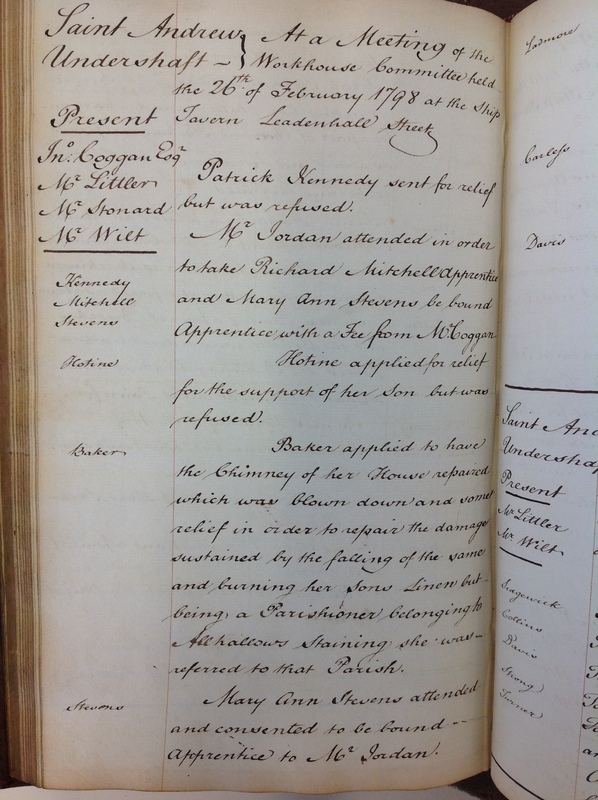 Saint Andrew } At a Meeting of the
Undershaft – } Workhouse Committee held
the 26th of February 1798 at the Ship
Tavern Leadenhall Street
Present
Jno. Coggan Esqr
Mr Littler
Mr Stonard
Mr Wilt
Patrick Kennedy sent for relief
but was refused.
Mr Jordan attended in order
Kennedy
to take Richard Mitchell Apprentice
Mitchell
and Mary Ann Stevens be bound
Stevens
Apprentice with a Fee from Mr Coggan
Hotine
Hotine applied for relief
for the support of her Son but was
refused.
Baker
Baker applied to have
the Chimney of her House repaired
which was blown down and some
relief in order to repair the damage
sustained by the falling of the same
and burning her sons Linen but
being a Parishioner belonging to
Allhallows Staining she was
referred to that Parish.
Stevens
Mary Ann Stevens attended
and consented to be bound
Apprentice to Mr Jordan.
Ladmore
Careless
Davis
Saint And
Undershaf
Present
Mr Littler
Mr Wilt
Sedgewick
Collins
Davis
Strong
Turner